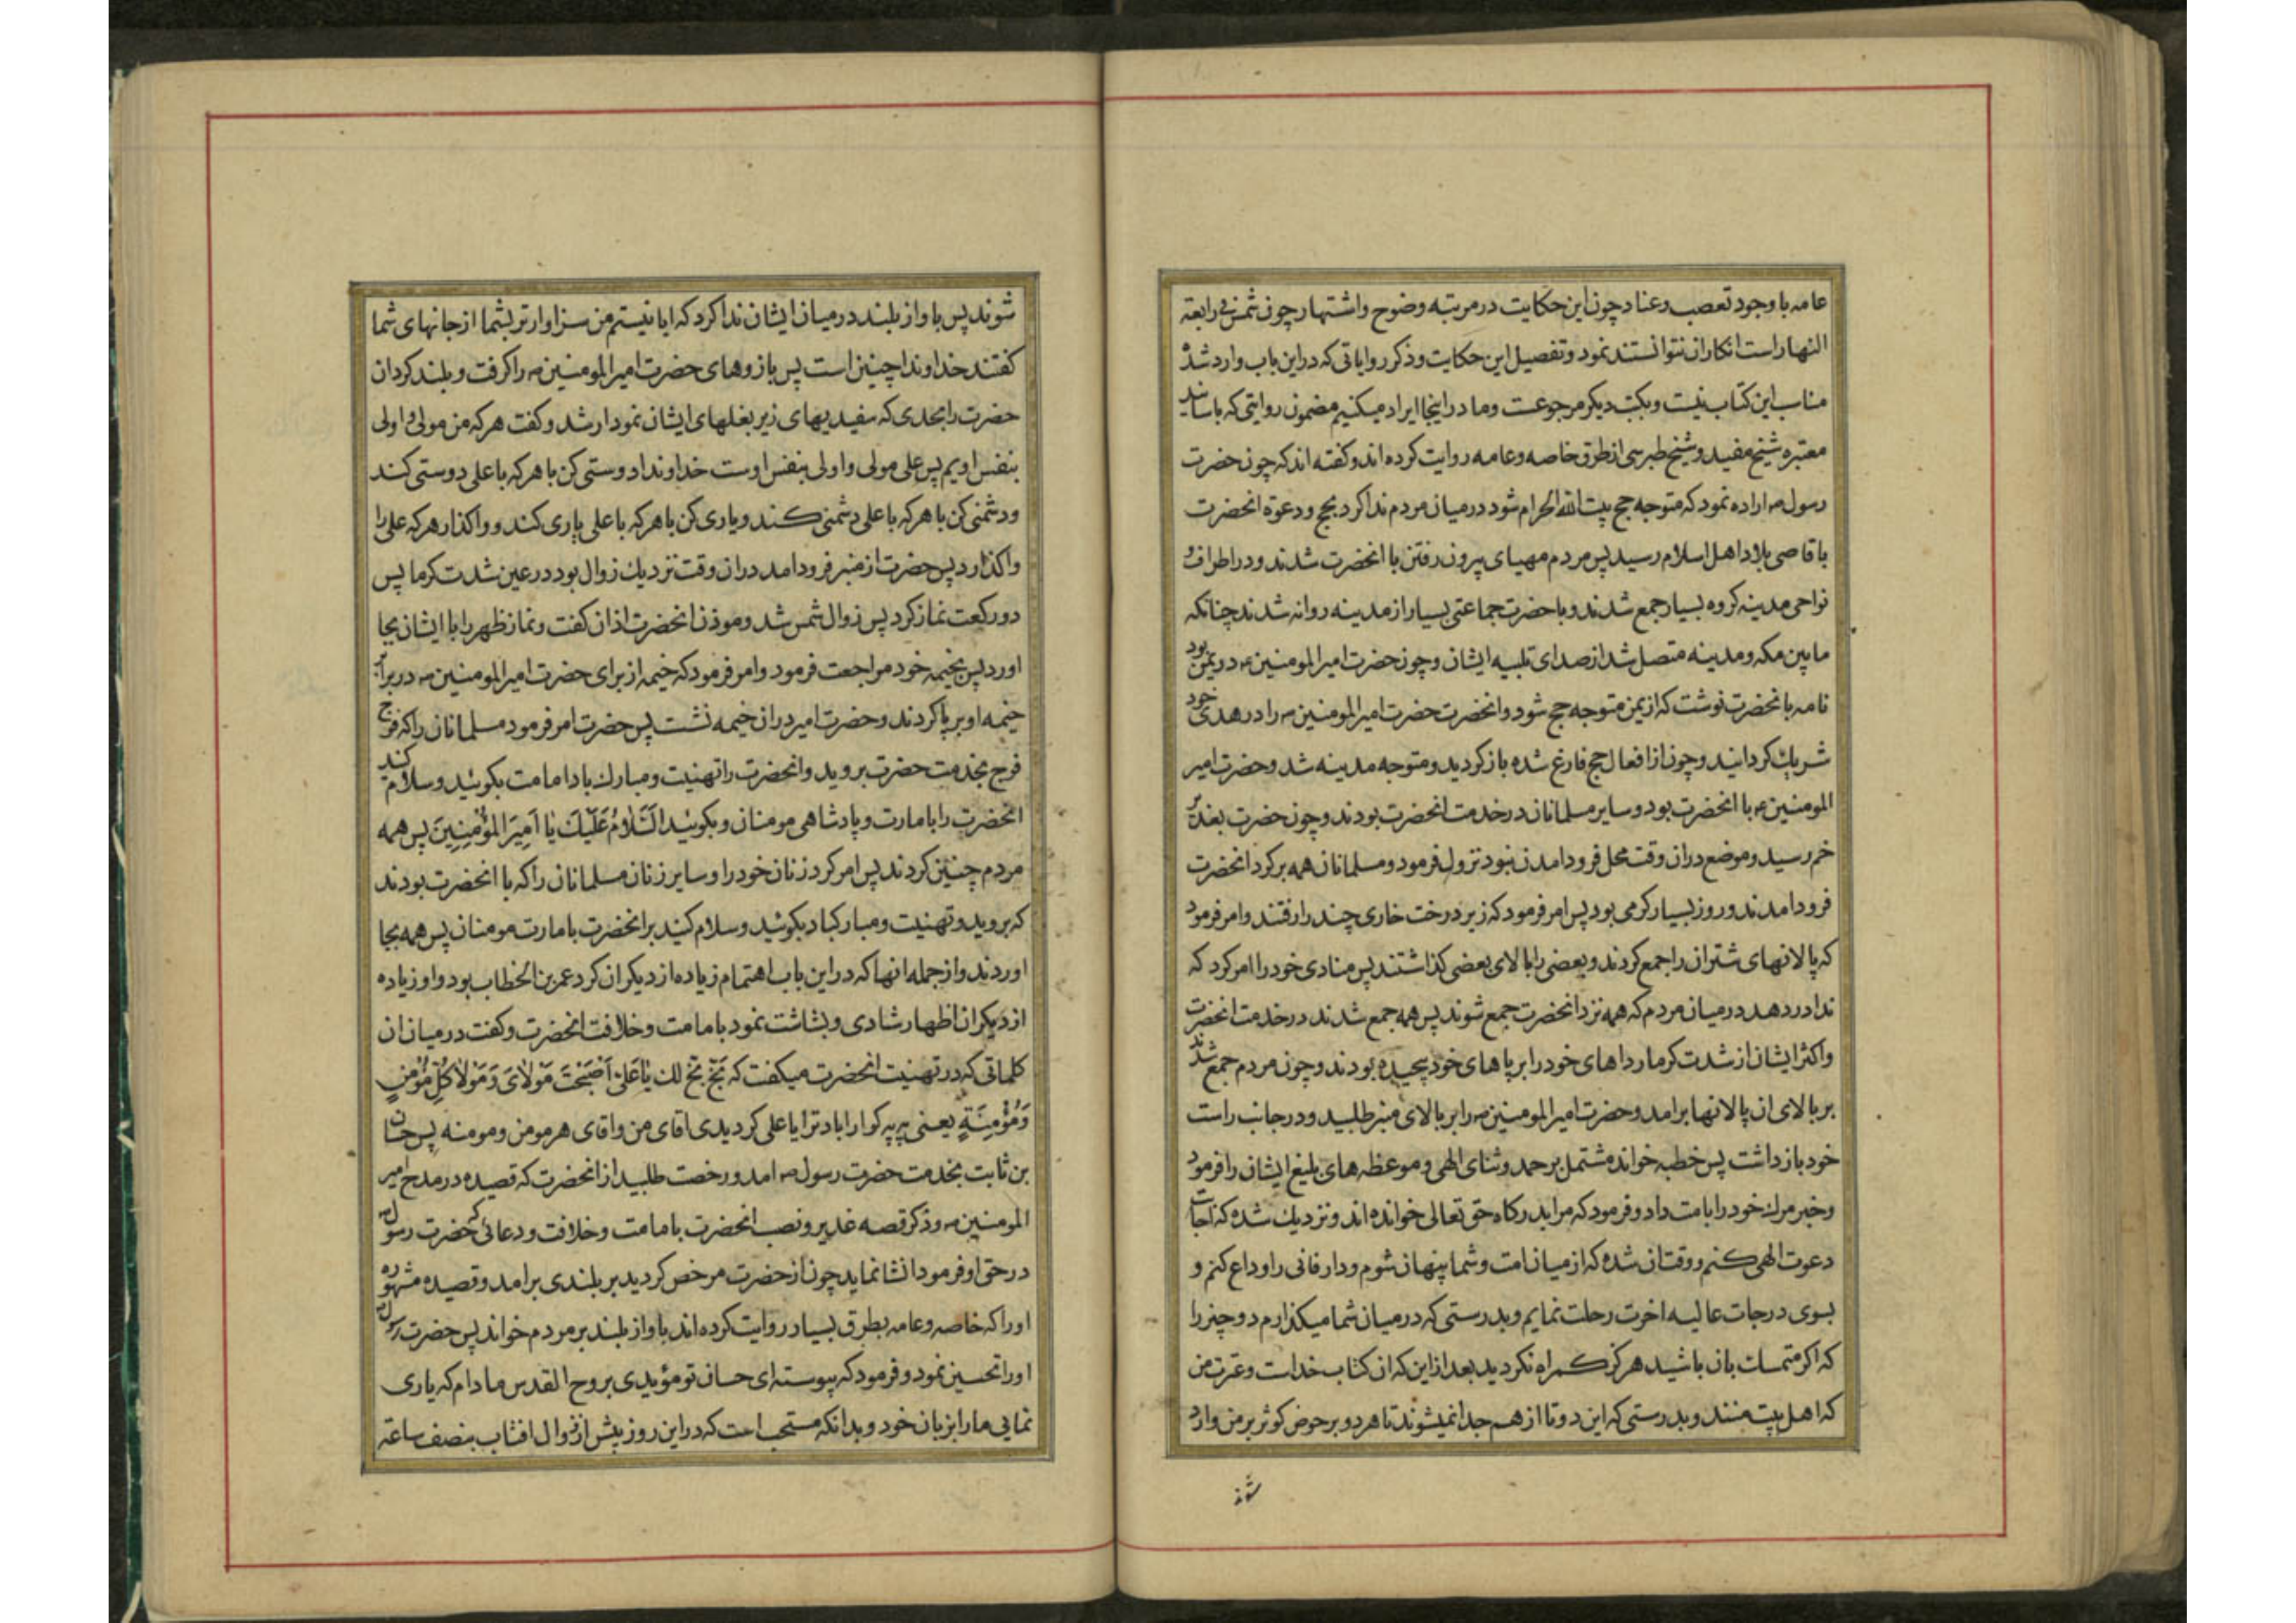 عامه با وجود تعصب و عناد چون این حکایت در مرتبه وضوح و اشتهار چون شمس فی رابعة
النهار است انکار ان نتوانستند نمود و تفصیل این حکایت و ذکر روایاتی که در این باب وارد شده
مناسب این کتاب نیست و بکتب دیکر مرجوعست و ما در اینجا ایراد میکنیم مضمون روایتی که باسانید
معتبره شیخ مفید و شیخ طبرسی از طرق خاصه و عامه روایت کرده اند و کفته اند که چون حضرت
رسول ص اراده نمود که متوجه حج بیت الله الحرام شود در میان مردم ندا کرد بحج و دعوة انحضرت
باقاصی بلاد اهل اسلام رسید پس مردم مهیای بیرون رفتن با انحضرت شدند و در اطراف و
نواحی مدینه کروه بسیار جمع شدند و با حضرت جماعتی بسیار از مدینه روانه شدند چنانکه
مابین مکه و مدینه متصل شد از صدای تلبیه ایشان و چون حضرت امیر المومنین ع در یمن بود
نامه بانحضرت نوشت که از یمن متوجه حج شود و انحضرت حضرت امیر المومنین ع را در هدی خود
شریک کردانید و چون از افعال حج فارغ شده باز کردید و متوجه مدینه شد و حضرت امیر
المومنین ع با انحضرت بود و سایر مسلمانان در خدمت انحضرت بودند و چون حضرت بغدیر
خم رسید و موضع در ان وقت محل فرود امدن نبود نزول فرمود و مسلمانان همه بر کرد انحضرت
فرود امدند و روز بسیار کرمی بود پس امر فرمود که زیر درخت خاری چند را رفتند و امر فرمود
که پالانهای شتران را جمع کردند و بعضی را بالای بعضی کذاشتند پس منادی خود را امر کرد که
ندا در دهد در میان مردم که همه نزد انحضرت جمع شوند پس همه جمع شدند در خدمت انحضرت
و اکثر ایشان از شدت کرما رداهای خود را بر پاهای خود پیچیده بودند و چون مردم جمع شدند
بر بالای ان پالانها برامد و حضرت امیر المومنین ع را بر بالای منبر طلبید و در جانب راست
خود باز داشت پس خطبه خواند مشتمل بر حمد و ثنای الهی و موعظه های بلیغ ایشان را فرمود
و خبر مرک خود را بامت داد و فرمود که مرا بدرکاه حق تعالی خوانده اند و نزدیک شده که اجابت
دعوت الهی کنم و وقت ان شده که از میان امت و شما پنهان شوم و دار فانی را وداع کنم و
بسوی درجات عالیه اخرت رحلت نمایم و بدرستی که در میان شما میکذارم دو چیز را
که اکر متمسک بان باشید هرکز کمراه نکردید بعد از این که ان کتاب خداست و عترت من
که اهل بیت منند و بدرستی که این دو تا از هم جدا نمیشوند تا هر دو بر حوض کوثر بر من وارد
شوند
شوند پس باواز بلند در میان ایشان ندا کرد که ایا نیستم من سزاوارتر بشما از جانهای شما
کفتند خداوندا چنین است پس بازوهای حضرت امیر المومنین ع را کرفت و بلند کرد ان
حضرت را بحدی که سفیدیهای زیر بغلهای ایشان نمودار شد و کفت هر که من مولی و اولی
بنفس اویم پس علی مولی و اولی بنفس اوست خداوندا دوستی کن با هر که با علی دوستی کند
و دشمنی کن با هر که با علی دشمنی کند و یاری کن با هر که با علی یاری کند و واکذار هر که علی را
واکذارد پس حضرت از منبر فرود امد در ان وقت نزدیک زوال بود در عین شدت کرما پس
دو رکعت نماز کرد پس زوال شمس شد و موذن انحضرت اذان کفت و نماز ظهر را با ایشان بجا
اورد پس بخیمه خود مراجعت فرمود و امر فرمود که خیمه از برای حضرت امیر المومنین ع در برابر
خیمه او برپا کردند و حضرت امیر در ان خیمه نشست پس حضرت امر فرمود مسلمانان را که فوج
فوج بخدمت حضرت بروید و انحضرت را تهنیت و مبارک باد امامت بکوئید و سلام کنید
انحضرت را بامارت و پادشاهی مومنان و بکوئید اَلسَّلامُ عَلَیْكَ یٰا اَمِیرَ الْمُؤْمِنِینَ پس همه
مردم چنین کردند پس امر کرد زنان خود را و سایر زنان مسلمانان را که با انحضرت بودند
که بروید و تهنیت و مبارکباد بکوئید و سلام کنید بر انحضرت بامارت مومنان پس همه بجا
اوردند و از جمله انها که در این باب اهتمام زیاده از دیکران کرد عمر بن الخطاب بود و او زیاده
از دیکران اظهار شادی و بشاشت نمود بامامت و خلافت انحضرت و کفت در میان ان
کلماتی که در تهنیت انحضرت میکفت که بَخٍّ بَخٍّ لك یٰا عَلیُّ اَصْبَحْتَ مَوْلٰایَ وَ مَوْلٰا كُلِّ مُؤْمِنٍ
وَ مُؤْمِنَةٍ یعنی به به کوارا باد ترا یا علی کردیدی اقای من و اقای هر مومن و مومنه پس حسان
بن ثابت بخدمت حضرت رسول ص امد و رخصت طلبید از انحضرت که قصیده در مدح امیر
المومنین ع و ذکر قصه غدیر و نصب انحضرت بامامت و خلافت و دعائی که حضرت رسول ص
در حق او فرمود انشا نماید چون از حضرت مرخص کردید بر بلندی برامد و قصیده مشهوره
او را که خاصه و عامه بطرق بسیار روایت کرده اند باواز بلند بر مردم خواند پس حضرت رسول ص
او را تحسین نمود و فرمود که پیوسته ای حسان تو مؤیدی بروح القدس مادام که یاری
نمایی ما را بزبان خود و بدانکه مستحب است که در این روز پیش از زوال افتاب بنصف ساعة